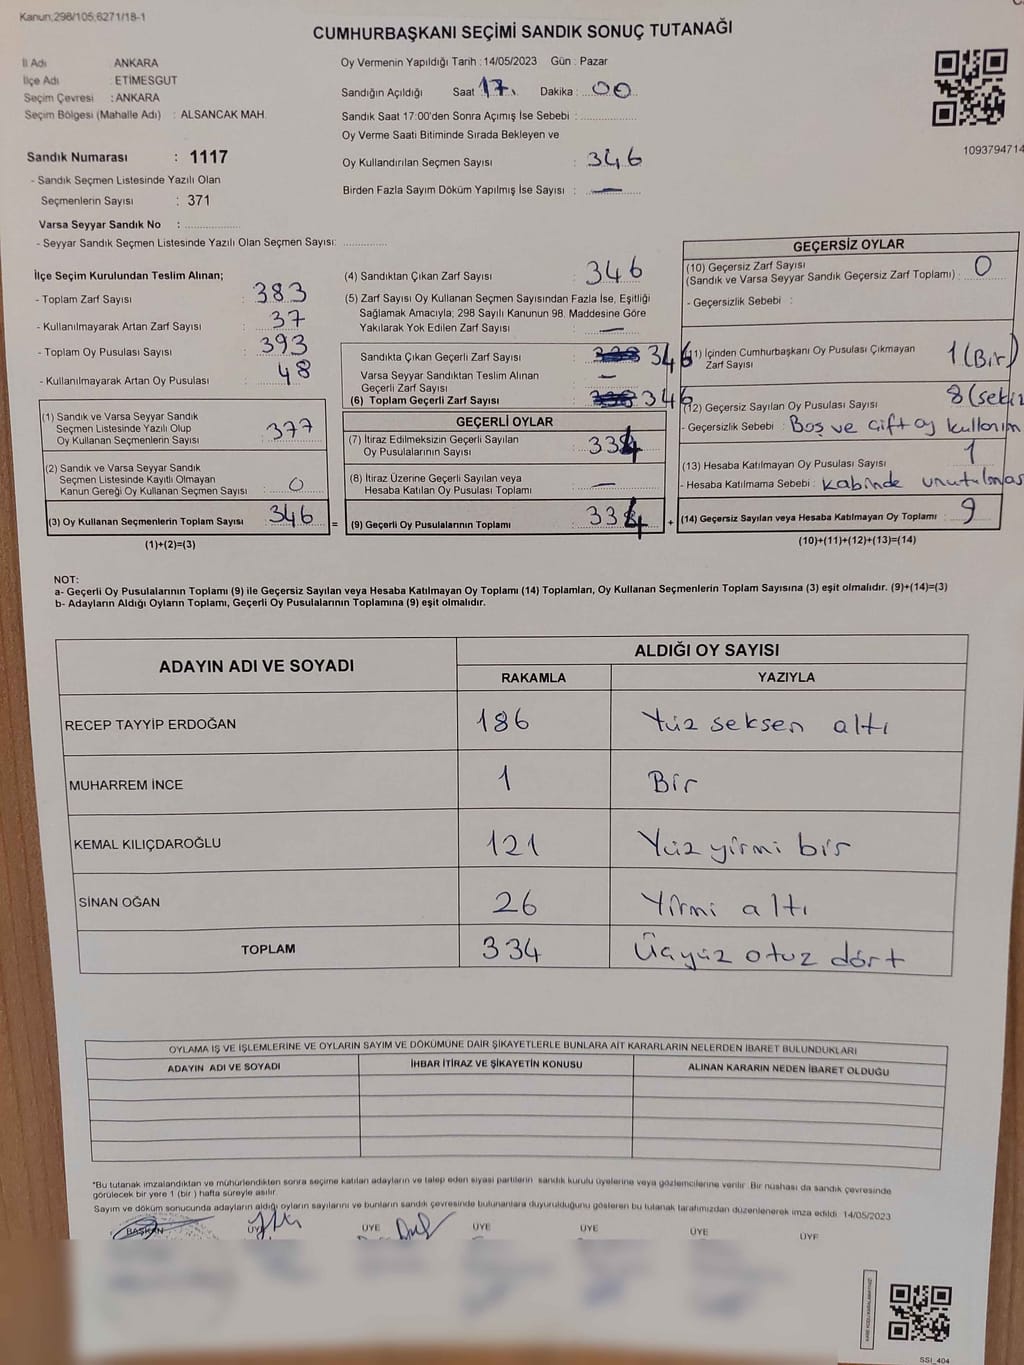 Kanun,298/105,6271/18-1
CUMHURBAŞKANI SEÇİMİ SANDIK SONUÇ TUTANAĞI
İl Adı : ANKARA
İlçe Adı : ETİMESGUT
Seçim Çevresi : ANKARA
Seçim Bölgesi (Mahalle Adı) : ALSANCAK MAH.
Sandık Numarası : 1117
- Sandık Seçmen Listesinde Yazılı Olan
Seçmenlerin Sayısı : 371
Varsa Seyyar Sandık No :
- Seyyar Sandık Seçmen Listesinde Yazılı Olan Seçmen Sayısı:
Oy Vermenin Yapıldığı Tarih : 14/05/2023 Gün : Pazar
Sandığın Açıldığı Saat 17. Dakika : 00
Sandık Saat 17:00'den Sonra Açımış İse Sebebi :
Oy Verme Saati Bitiminde Sırada Bekleyen ve
Oy Kullandırılan Seçmen Sayısı : 346
Birden Fazla Sayım Döküm Yapılmış İse Sayısı : —
1093794714
İlçe Seçim Kurulundan Teslim Alınan;
- Toplam Zarf Sayısı : 383
- Kullanılmayarak Artan Zarf Sayısı : 37
- Toplam Oy Pusulası Sayısı : 393
- Kullanılmayarak Artan Oy Pusulası : 48
(1) Sandık ve Varsa Seyyar Sandık
Seçmen Listesinde Yazılı Olup
Oy Kullanan Seçmenlerin Sayısı : 377
(2) Sandık ve Varsa Seyyar Sandık
Seçmen Listesinde Kayıtlı Olmayan
Kanun Gereği Oy Kullanan Seçmen Sayısı : 0
(3) Oy Kullanan Seçmenlerin Toplam Sayısı : 346
(1)+(2)=(3)
(4) Sandıktan Çıkan Zarf Sayısı : 346
(5) Zarf Sayısı Oy Kullanan Seçmen Sayısından Fazla İse, Eşitliği
Sağlamak Amacıyla; 298 Sayılı Kanunun 98. Maddesine Göre
Yakılarak Yok Edilen Zarf Sayısı : —
Sandıkta Çıkan Geçerli Zarf Sayısı : 346
Varsa Seyyar Sandıktan Teslim Alınan
Geçerli Zarf Sayısı : —
(6) Toplam Geçerli Zarf Sayısı : 346
GEÇERLİ OYLAR
(7) İtiraz Edilmeksizin Geçerli Sayılan
Oy Pusulalarının Sayısı : 334
(8) İtiraz Üzerine Geçerli Sayılan veya
Hesaba Katılan Oy Pusulası Toplamı : —
= (9) Geçerli Oy Pusulalarının Toplamı : 334 +
GEÇERSİZ OYLAR
(10) Geçersiz Zarf Sayısı
(Sandık ve Varsa Seyyar Sandık Geçersiz Zarf Toplamı) : 0
- Geçersizlik Sebebi :
(11) İçinden Cumhurbaşkanı Oy Pusulası Çıkmayan
Zarf Sayısı 1 (Bir)
(12) Geçersiz Sayılan Oy Pusulası Sayısı 8 (sekiz
- Geçersizlik Sebebi : Boş ve Çift oy kullanım
(13) Hesaba Katılmayan Oy Pusulası Sayısı : 1
- Hesaba Katılmama Sebebi : kabinde unutulmas
(14) Geçersiz Sayılan veya Hesaba Katılmayan Oy Toplamı : 9
(10)+(11)+(12)+(13)=(14)
NOT:
a- Geçerli Oy Pusulalarının Toplamı (9) ile Geçersiz Sayılan veya Hesaba Katılmayan Oy Toplamı (14) Toplamları, Oy Kullanan Seçmenlerin Toplam Sayısına (3) eşit olmalıdır. (9)+(14)=(3)
b- Adayların Aldığı Oyların Toplamı, Geçerli Oy Pusulalarının Toplamına (9) eşit olmalıdır.
ADAYIN ADI VE SOYADI ALDIĞI OY SAYISI
RAKAMLA YAZIYLA
RECEP TAYYİP ERDOĞAN 186 Yüz seksen altı
MUHARREM İNCE 1 Bir
KEMAL KILIÇDAROĞLU 121 Yüz yirmi bir
SİNAN OĞAN 26 Yirmi altı
TOPLAM 334 Üçyüz otuz dört
OYLAMA İŞ VE İŞLEMLERİNE VE OYLARIN SAYIM VE DÖKÜMÜNE DAİR ŞİKAYETLERLE BUNLARA AİT KARARLARIN NELERDEN İBARET BULUNDUKLARI
ADAYIN ADI VE SOYADI İHBAR İTİRAZ VE ŞİKAYETİN KONUSU ALINAN KARARIN NEDEN İBARET OLDUĞU
*Bu tutanak imzalandıktan ve mühürlendikten sonra seçime katılan adayların ve talep eden siyasi partilerin sandık kurulu üyelerine veya gözlemcilerine verilir. Bir nushası da sandık çevresinde
görülecek bir yere 1 (bir) hafta süreyle asılır.
Sayım ve döküm sonucunda adayların aldığı oyların sayılarını ve bunların sandık çevresinde bulunanlara duyurulduğunu gösteren bu tutanak tarafımızdan düzenlenerek imza edildi. 14/05/2023
BAŞKAN ÜYE ÜYE ÜYE ÜYE ÜYE ÜYE
SSI_404